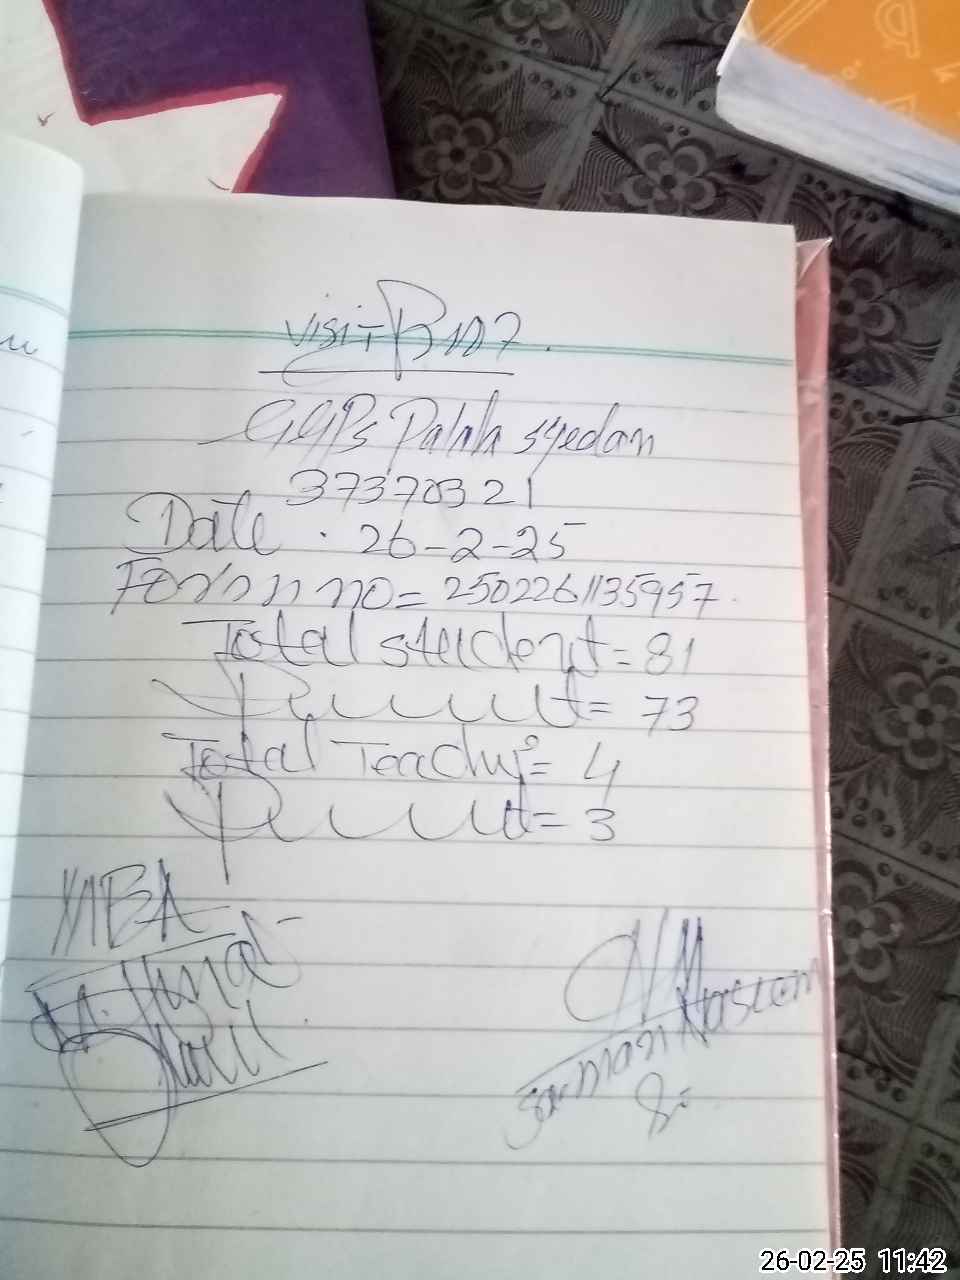 visit B 107.
GGPS Palah syedan
37370321
Date . 26-2-25
Form no = 2502261135957.
Total student = 81
Present = 73
Total Teacher = 4
Present = 3
MEA
26-02-25 11:42